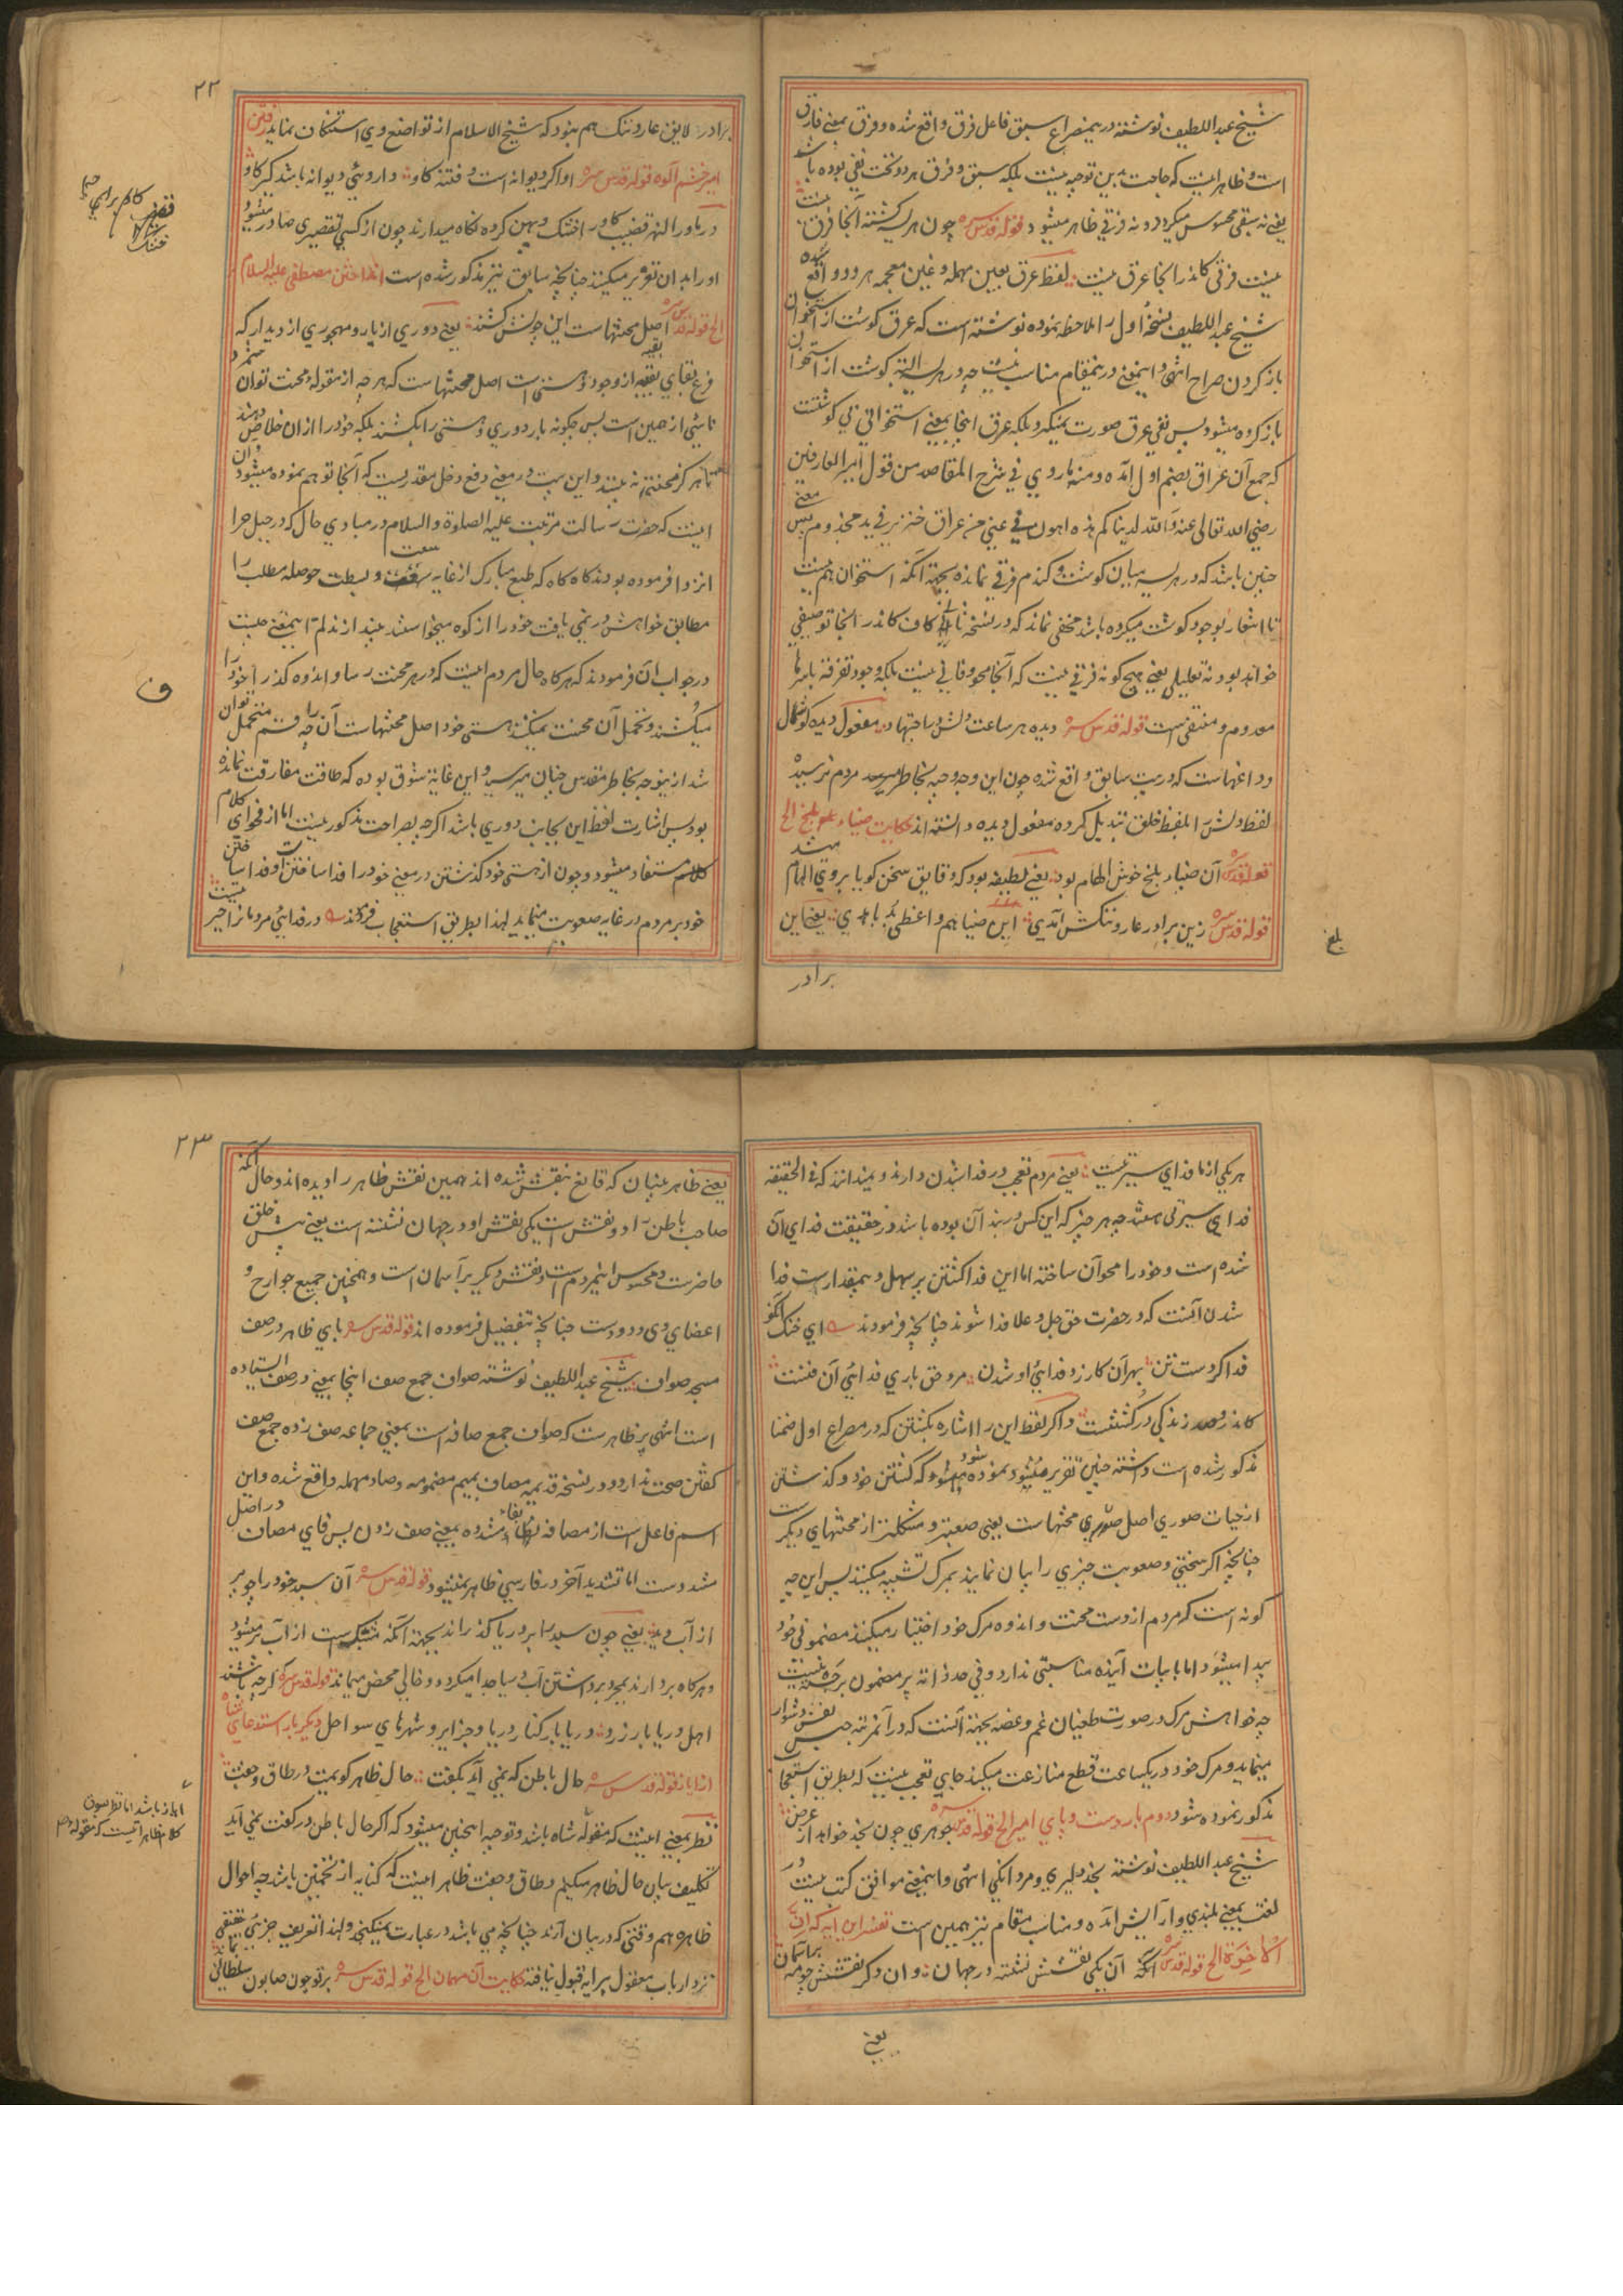 شیخ عبد اللطیف نوشته در ینمصراع سبق فاعل فرق واقع شده و فرق بمعنی فارق
است و ظاهر اینست که حاجت بدین توجیه نیست بلکه سبق و فرق هر دو تحت نفی بوده باشد
یعنی نه سبقی محسوس میگردد و نه فرقی ظاهر میشود قوله قدس سره چون هریسه گشته آنجا فرق نیست
نیست فرقی کاندر انجا غرق نیست لفظ عرق بعین مهمله و غین معجمه هر دو واقع شده
شیخ عبد اللطیف نسخه اول را ملاحظه نموده نوشته است که عرق گوشت از استخوان
باز کردن صراح انتهی و اینمعنی درینمقام مناسب نیست چه در هریسه البته گوشت از استخوان
باز کرده میشود پس نفی عرق صورت نمیگیرد بلکه عرق انجا بمعنی استخوانی بی گوشتست
که جمع آن عراق بضم اول آمده ومنه ما روی فی شرح المقاصد من قول امیر العارفین
رضی الله تعالی عنه والله لدنیاکم هذه اهون فی عینی من عراق خنزیر فی ید مجذوم پس معنی
چنین باشد که در هریسه میان گوشت و گندم فرقی نمانده بجهة آنکه استخوان هم نیست
تا اشعار بوجود گوشت میکرده باشد مخفی نماند که در نسخه ثانی کاف کاندر انجا توصیفی
خواهد بود نه تعلیلی یعنی هیچ گونه فرقی نیست که آنجا محو و فانی نیست بلکه وجود تفرقه بامرها
معدوم و منتفی است قوله قدس سره دیده هر ساعت دلش را جتهاد مفعول دیده گوشمال
و داغهاست که در بیت سابق واقع شده چون این وجه وجیه بخاطر مردم نرسیده
لفظ دلش را بلفظ خلق تبدیل کرده مفعول دیده دانسته اند حکایت ضیاء بلخ الخ
قوله قدس سره آن ضیاء بلخ خوش الهام بود یعنی لطیفه بود که دقایق سخن گویا بروی الهام میشد
قوله قدس سره زین برادر عار و ننکش آمدی این ضیا هم واعظی بد باهدی یعنی این
برادر
بلغ
۲۲
برادر لایق عار و ننک هم نبود که شیخ الاسلام از تواضع وی استنکاف نماید رفتن
امیر خشم آلوه قوله قدس سره او اگر دیوانه است و فتنه کاو داروئی دیوانه باشد کیر کاو
در ماورا النهر قضیب کاو را خشک و پهن کرده نگاه میدارند چون از کسی تقصیری صادر میشود
او را بدان تعزیر میکنند چنانچه سابق نیز مذکور شده است انداختن مصطفی علیه السلام
الخ قوله قدس سره اصل محنتهاست این چونش کشند یعنی دوری از یار و مهجوری از دیدار که
فرع بقای بقیه از وجود و هستی است اصل محنتهاست که هر چه از مقوله محنت توان شمرد
ناشی از همین است پس چگونه بار دوری و هستی را بکشند بلکه خود را ازان خلاص دهند
تا هرگز محنتی نه بینند و این بیت در معنی دفع دخل مقدریست که آنجا توهم نموده میشود و آن
اینست که حضرت رسالت مرتبت علیه الصلوة والسلام در مبادی حال که در جبل حرا
انزوا فرموده بودند گاه گاه که طبع مبارک از غایه سعت و بسطت حوصله مطلب را
مطابق خواهش در نمی یافت خود را از کوه میخواستند بیندازند لم اینمعنی چیست
در جواب آن فرمودند که هرگاه حال مردم اینست که در هر محنت رسا و اندوه گذرا خود را
میکشند و تحمل آن محنت نمیکنند هستی خود اصل محنتهاست آن را چه قسم متحمل توان
شد ازینوجه بخاطر مقدس چنان میرسید و این غایة شوق بوده که طاقت مفارقت نمانده
بود پس اشارت لفظ این بجانب دوری باشد اگرچه بصراحت مذکور نیست اما از فحوای کلام
مستفاد میشود و چون از هستی خود گذشتن در معنی خود را فدا ساختن است و فدا ساختن
خود بر مردم در غایه صعوبت مینماید لهذا بطریق استعجاب فرمودند در فدایی مردمانرا حیرتیست
ف
هر یکی از ما فدای سیرتیست یعنی مردم تعجب در فدا شدن دارند و نمیدانند که فی الحقیقه
فدای سیرتی هستند چه هر چیز که این کس در بند آن بوده باشد در حقیقت فدای آن
شده است و خود را محو آن ساخته اما این فدا گشتن بر سهل و بیمقدارست فدا
شدن آنست که در حضرت حق جل و علا فدا شوند چنانچه فرمودند ای خنک آنکو
فدا کردست تن بهر آن کارزد فدایی او شدن مرد حق باری فدایی آن فنیست
کاندر و صد زندگی در کشتنست و اگر لفظ این را اشاره بکشتن که در مصراع اول ضمنا
مذکور شده است داشته چنین تقریر نموده میشود که کشتن خود و گذشتن
از حیات صوری اصل محنتهاست یعنی صعبتر و مشکلتر از محنتهای دیگرست
چنانچه اگر سختی و صعوبت چیزی را بیان نمایند بمرگ تشبیه میکنند پس این چه
گونه است که مردم از دست محنت و اندوه مرگ خود اختیار میکنند مضمونی خود
پیدا میشود اما بابیات آینده مناسبتی ندارد و فی حد ذاته پر مضمون برجسته نیست
چه خواهش مرگ در صورت طغیان غم و غصه بجهة آنست که در آنمرتبه حبس نفس دشوار
مینماید و مرگ خود در یکساعت قطع منازعت میکند جای تعجب نیست که بطریق استعجاب
مذکور نموده شود دوم بار دست و پای امیر الخ قوله قدس سره جوهری چون نجد خواهد از عرض
شیخ عبد اللطیف نوشته نجد دلیری و مردانگی انتهی و اینمعنی موافق کتب نیست در
لغت بمعنی بلندی و آرایش آمده و مناسب مقام نیز همین است تفسیر این آیه که ان
الآخرة الخ قوله قدس سره آنکه آن یکی نقشش نشسته در جهان و آن دگر نقشش چو مه بر آسمان
یعنی
۲۳
یعنی ظاهر بینان که قانع بنقش شده اند همین نقش ظاهر را دیده اند و حال آنکه
صاحب باطن را دو نقش است یکی نقش او در جهان نشسته است یعنی پیش خلق
حاضرست و محسوس اینمردم است و نقش دیگر بر آسمان است و همچنین جمیع جوارح و
اعضای وی دو دوست چنانچه بتفصیل فرموده اند قوله قدس سره پای ظاهر در صف
مسجد صواف شیخ عبد اللطیف نوشته صواف جمع صف اینجا بمعنی در صف ایستاده
است انتهی پر ظاهرست که صواف جمع صافه است بمعنی جماعه صف زده جمع صف
گفتن صحت ندارد و در نسخه قدیمه مصاف بمیم مضمومه و صاد مهمله واقع شده و این
اسم فاعل است از مصافه بفاء مشدده بمعنی صف زدن پس فای مصاف در اصل
مشددست اما تشدید آخر در فارسی ظاهر نمیشود قوله قدس سره آن سبد خود را چو پر
از آب دید یعنی چون سبد را بر دریا گذرانند بجهة آنکه مشبک است از آب پر میشود
و هرگاه بردارند بمجرد برداشتن آب و سیا جدا میگردد و خالی محض میماند قوله قدس سره گرچه باشند
اهل دریا بار زرد دریا بار کنار دریا و جزایر و شهرهای سواحل دیگر بار استدعای شاه
از ایاز قوله قدس سره حال باطن گر نمی آید بگفت حال ظاهر گویمت در طاق و جفت
نظر بمعنی اینست که مقوله شاه باشد و توجیه اینچنین میشود که اگر حال باطن در گفت نمی آید
تکلیف بیان حال ظاهر میکنیم و طاق و جفت ظاهرا اینست که کنایه از تخمین باشد چه احوال
ظاهر هم وقتی که در بیان آرند چنانچه می باشد در عبارت نمیگنجد و لهذا تعریف جزئی حقیقی
نزد ارباب معقول پیرایه قبول نیافته حکایت آن مهمان الخ قوله قدس سره بر تو چون صابون سلطانی بماند